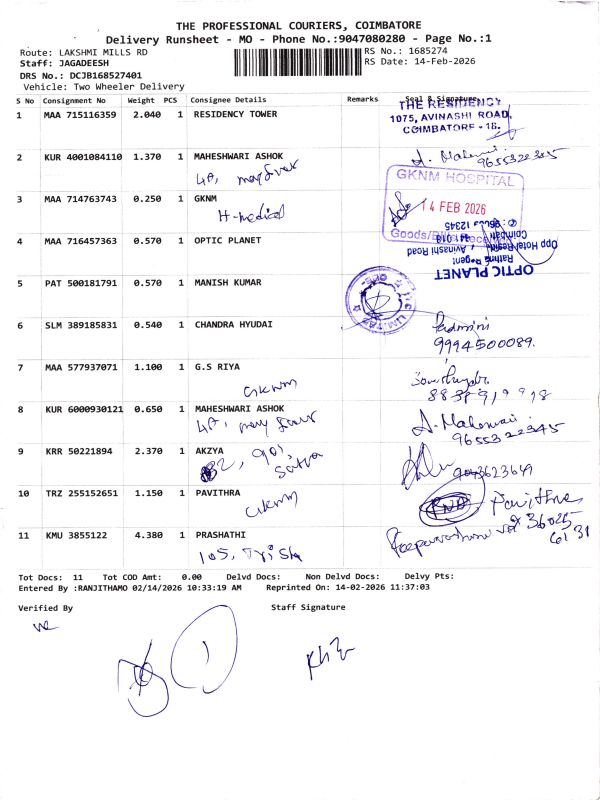 THE PROFESSIONAL COURIERS, COIMBATORE
Delivery Runsheet - MO - Phone No.:9047080280 - Page No.:1
Route: LAKSHMI MILLS RD RS No.: 1685274
Staff: JAGADEESH RS Date: 14-Feb-2026
DRS No.: DCJB168527401
Vehicle: Two Wheeler Delivery
S No Consignment No Weight PCS Consignee Details Remarks Seal & Signature
1 MAA 715116359 2.040 1 RESIDENCY TOWER
THE RESIDENCY
1075, AVINASHI ROAD,
COIMBATORE - 18.
2 KUR 4001084110 1.370 1 MAHESHWARI ASHOK
4A,
9655322345
3 MAA 714763743 0.250 1 GKNM
H-medical
GKNM HOSPITAL
14 FEB 2026
4 MAA 716457363 0.570 1 OPTIC PLANET
OPTIC PLANET
Avinashi Road
5 PAT 500181791 0.570 1 MANISH KUMAR
6 SLM 389185831 0.540 1 CHANDRA HYUDAI
Padmini
9994500089.
7 MAA 577937071 1.100 1 G.S RIYA
GKNM
8 KUR 6000930121 0.650 1 MAHESHWARI ASHOK
4A,
9655322345
9 KRR 50221894 2.370 1 AKZYA
901,
10 TRZ 255152651 1.150 1 PAVITHRA
GKNM
Pavithra
11 KMU 3855122 4.380 1 PRASHATHI
105,
Tot Docs: 11 Tot COD Amt: 0.00 Delvd Docs: Non Delvd Docs: Delvy Pts:
Entered By :RANJITHAMO 02/14/2026 10:33:19 AM Reprinted On: 14-02-2026 11:37:03
Verified By Staff Signature